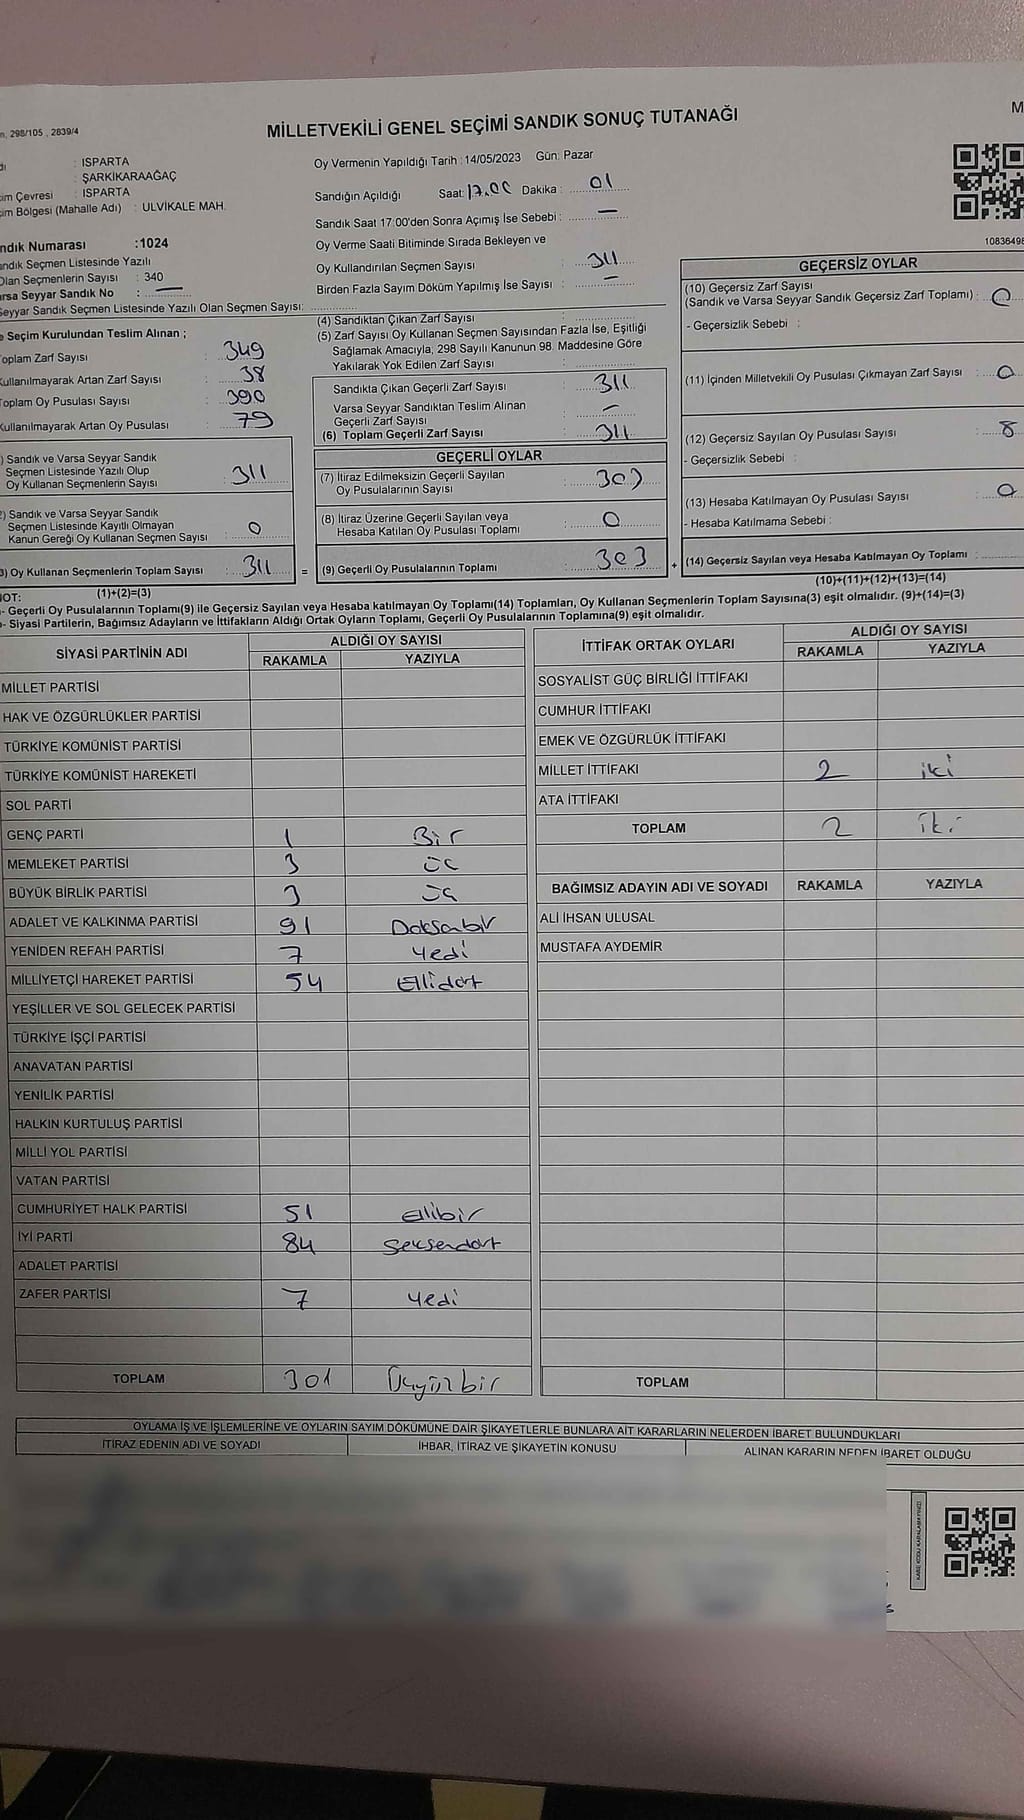 MİLLETVEKİLİ GENEL SEÇİMİ SANDIK SONUÇ TUTANAĞI
298/105 , 2839/4
: ISPARTA
: ŞARKİKARAAĞAÇ
Çevresi : ISPARTA
Bölgesi (Mahalle Adı) : ULVİKALE MAH.
Numarası :1024
Seçmen Listesinde Yazılı
Olan Seçmenlerin Sayısı : 340
Seyyar Sandık No : —
Seyyar Sandık Seçmen Listesinde Yazılı Olan Seçmen Sayısı:
Seçim Kurulundan Teslim Alınan ;
Toplam Zarf Sayısı : 349
Kullanılmayarak Artan Zarf Sayısı : 38
Toplam Oy Pusulası Sayısı : 390
Kullanılmayarak Artan Oy Pusulası : 79
Sandık ve Varsa Seyyar Sandık
Seçmen Listesinde Yazılı Olup
Oy Kullanan Seçmenlerin Sayısı : 311
2) Sandık ve Varsa Seyyar Sandık
Seçmen Listesinde Kayıtlı Olmayan
Kanun Gereği Oy Kullanan Seçmen Sayısı : 0
3) Oy Kullanan Seçmenlerin Toplam Sayısı : 311 =
(1)+(2)=(3)
Oy Vermenin Yapıldığı Tarih :14/05/2023 Gün: Pazar
Sandığın Açıldığı Saat: 17.00 Dakika : 01
Sandık Saat 17:00'den Sonra Açımış İse Sebebi : —
Oy Verme Saati Bitiminde Sırada Bekleyen ve
Oy Kullandırılan Seçmen Sayısı : 311
Birden Fazla Sayım Döküm Yapılmış İse Sayısı : —
(4) Sandıktan Çıkan Zarf Sayısı :
(5) Zarf Sayısı Oy Kullanan Seçmen Sayısından Fazla İse, Eşitliği
Sağlamak Amacıyla, 298 Sayılı Kanunun 98. Maddesine Göre
Yakılarak Yok Edilen Zarf Sayısı :
Sandıkta Çıkan Geçerli Zarf Sayısı : 311
Varsa Seyyar Sandıktan Teslim Alınan
Geçerli Zarf Sayısı : —
(6) Toplam Geçerli Zarf Sayısı : 311
GEÇERLİ OYLAR
(7) İtiraz Edilmeksizin Geçerli Sayılan
Oy Pusulalarının Sayısı : 303
(8) İtiraz Üzerine Geçerli Sayılan veya
Hesaba Katılan Oy Pusulası Toplamı : 0
(9) Geçerli Oy Pusulalarının Toplamı : 303 +
GEÇERSİZ OYLAR
(10) Geçersiz Zarf Sayısı
(Sandık ve Varsa Seyyar Sandık Geçersiz Zarf Toplamı) : 0
- Geçersizlik Sebebi :
(11) İçinden Milletvekili Oy Pusulası Çıkmayan Zarf Sayısı : 0
(12) Geçersiz Sayılan Oy Pusulası Sayısı : 8
- Geçersizlik Sebebi :
(13) Hesaba Katılmayan Oy Pusulası Sayısı : 0
- Hesaba Katılmama Sebebi :
(14) Geçersiz Sayılan veya Hesaba Katılmayan Oy Toplamı :
(10)+(11)+(12)+(13)=(14)
NOT:
- Geçerli Oy Pusulalarının Toplamı(9) ile Geçersiz Sayılan veya Hesaba katılmayan Oy Toplamı(14) Toplamları, Oy Kullanan Seçmenlerin Toplam Sayısına(3) eşit olmalıdır. (9)+(14)=(3)
- Siyasi Partilerin, Bağımsız Adayların ve İttifakların Aldığı Ortak Oyların Toplamı, Geçerli Oy Pusulalarının Toplamına(9) eşit olmalıdır.
SİYASİ PARTİNİN ADI ALDIĞI OY SAYISI
RAKAMLA YAZIYLA
MİLLET PARTİSİ
HAK VE ÖZGÜRLÜKLER PARTİSİ
TÜRKİYE KOMÜNİST PARTİSİ
TÜRKİYE KOMÜNİST HAREKETİ
SOL PARTİ
GENÇ PARTİ 1 Bir
MEMLEKET PARTİSİ 3 üç
BÜYÜK BİRLİK PARTİSİ 3 üç
ADALET VE KALKINMA PARTİSİ 91 Doksanbir
YENİDEN REFAH PARTİSİ 7 Yedi
MİLLİYETÇİ HAREKET PARTİSİ 54 Ellidört
YEŞİLLER VE SOL GELECEK PARTİSİ
TÜRKİYE İŞÇİ PARTİSİ
ANAVATAN PARTİSİ
YENİLİK PARTİSİ
HALKIN KURTULUŞ PARTİSİ
MİLLİ YOL PARTİSİ
VATAN PARTİSİ
CUMHURİYET HALK PARTİSİ 51 Ellibir
İYİ PARTİ 84 Seksendört
ADALET PARTİSİ
ZAFER PARTİSİ 7 Yedi
TOPLAM 301 Üçyüzbir
İTTİFAK ORTAK OYLARI ALDIĞI OY SAYISI
RAKAMLA YAZIYLA
SOSYALİST GÜÇ BİRLİĞİ İTTİFAKI
CUMHUR İTTİFAKI
EMEK VE ÖZGÜRLÜK İTTİFAKI
MİLLET İTTİFAKI 2 iki
ATA İTTİFAKI
TOPLAM 2 iki
BAĞIMSIZ ADAYIN ADI VE SOYADI RAKAMLA YAZIYLA
ALİ İHSAN ULUSAL
MUSTAFA AYDEMİR
TOPLAM
OYLAMA İŞ VE İŞLEMLERİNE VE OYLARIN SAYIM DÖKÜMÜNE DAİR ŞİKAYETLERLE BUNLARA AİT KARARLARIN NELERDEN İBARET BULUNDUKLARI
İTİRAZ EDENİN ADI VE SOYADI İHBAR, İTİRAZ VE ŞİKAYETİN KONUSU ALINAN KARARIN NEDEN İBARET OLDUĞU